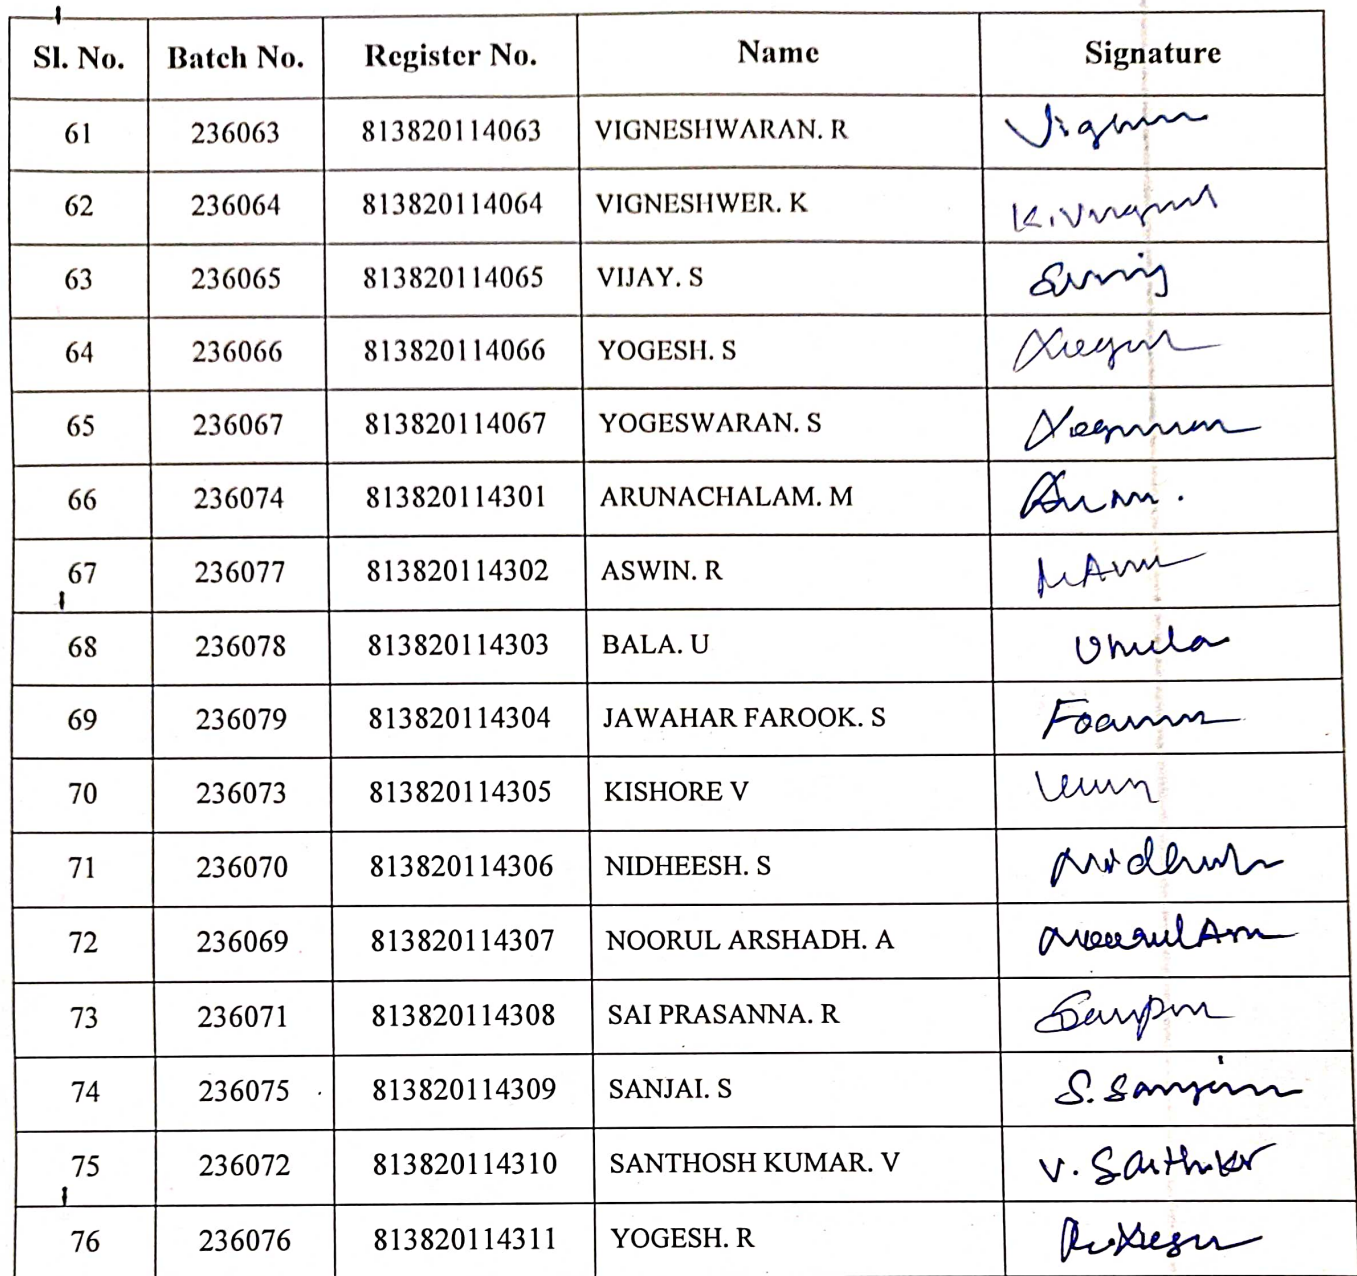 Sl. No. Batch No. Register No. Name Signature
61 236063 813820114063 VIGNESHWARAN. R
62 236064 813820114064 VIGNESHWER. K
63 236065 813820114065 VIJAY. S
64 236066 813820114066 YOGESH. S
65 236067 813820114067 YOGESWARAN. S
66 236074 813820114301 ARUNACHALAM. M
67 236077 813820114302 ASWIN. R
68 236078 813820114303 BALA. U
69 236079 813820114304 JAWAHAR FAROOK. S
70 236073 813820114305 KISHORE V
71 236070 813820114306 NIDHEESH. S
72 236069 813820114307 NOORUL ARSHADH. A
73 236071 813820114308 SAI PRASANNA. R
74 236075 813820114309 SANJAI. S
75 236072 813820114310 SANTHOSH KUMAR. V
76 236076 813820114311 YOGESH. R